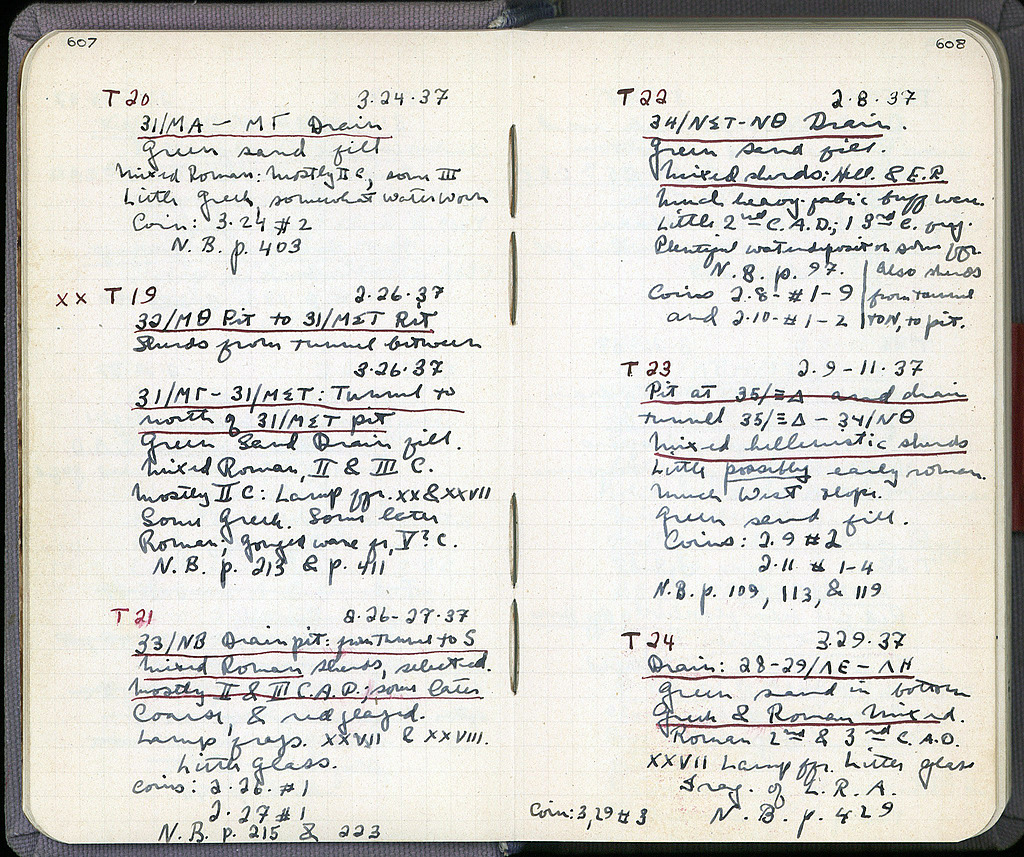 607
T 20 3.24.37
31/ΜΑ – ΜΓ Drain
Green sand fill
Mixed Roman: mostly II C, some III
Little Greek, somewhat waterworn
Coin: 3.24 #2
N.B. p. 403
xx T 19 2.26.37
32/ΜΘ Pit to 31/ΜΣΤ Pit
Sherds from tunnel between
3.26.37
31/ΜΓ – 31/ΜΣΤ: Tunnel to
north of 31/ΜΣΤ pit
Green Sand Drain fill.
Mixed Roman, II & III C.
Mostly II C: Lamp fr. XX & XXVII
Some Greek. Some later
Roman; gouged ware fr, V? C.
N.B. p. 213 & p. 411
T 21 2.26-27.37
33/ΝΒ Drain pit: from tunnel to S
Mixed Roman sherds, selected.
Mostly II & III C.A.D.; some later
Coarse, & red glazed.
Lamp frags. XXVII & XXVIII.
Little glass.
Coins: 2.26. #1
2.27 #1
N.B. p. 215 & 223
608
T 22 2.8.37
34/ΝΣΤ-ΝΘ Drain.
Green sand fill.
Mixed sherds: Hell. & E.R.
Much heavy-fabric buff ware.
Little 2nd C. A.D.; 1 3rd C. frag.
Plentiful water deposit on some fr.
N.B. p. 97.
Coins 2.8 - #1-9
and 2.10 - #1-2
Also sherds
from tunnel
to N, to pit.
T 23 2.9-11.37
Pit at 35/ΞΔ and drain
tunnel 35/ΞΔ – 34/ΝΘ
Mixed hellenistic sherds
Little possibly early roman.
Much West slope.
Green sand fill.
Coins: 2.9 #2
2.11 # 1-4
N.B. p. 109, 113, & 119
T 24 3.29.37
Drain: 28-29/ΛΕ – ΛΗ
Green sand in bottom
Greek & Roman Mixed.
Roman 2nd & 3rd C. A.D.
XXVII Lamp fr. Little glass
Frag. of L.R.A.
Coin: 3,29 #3 N.B. p. 429